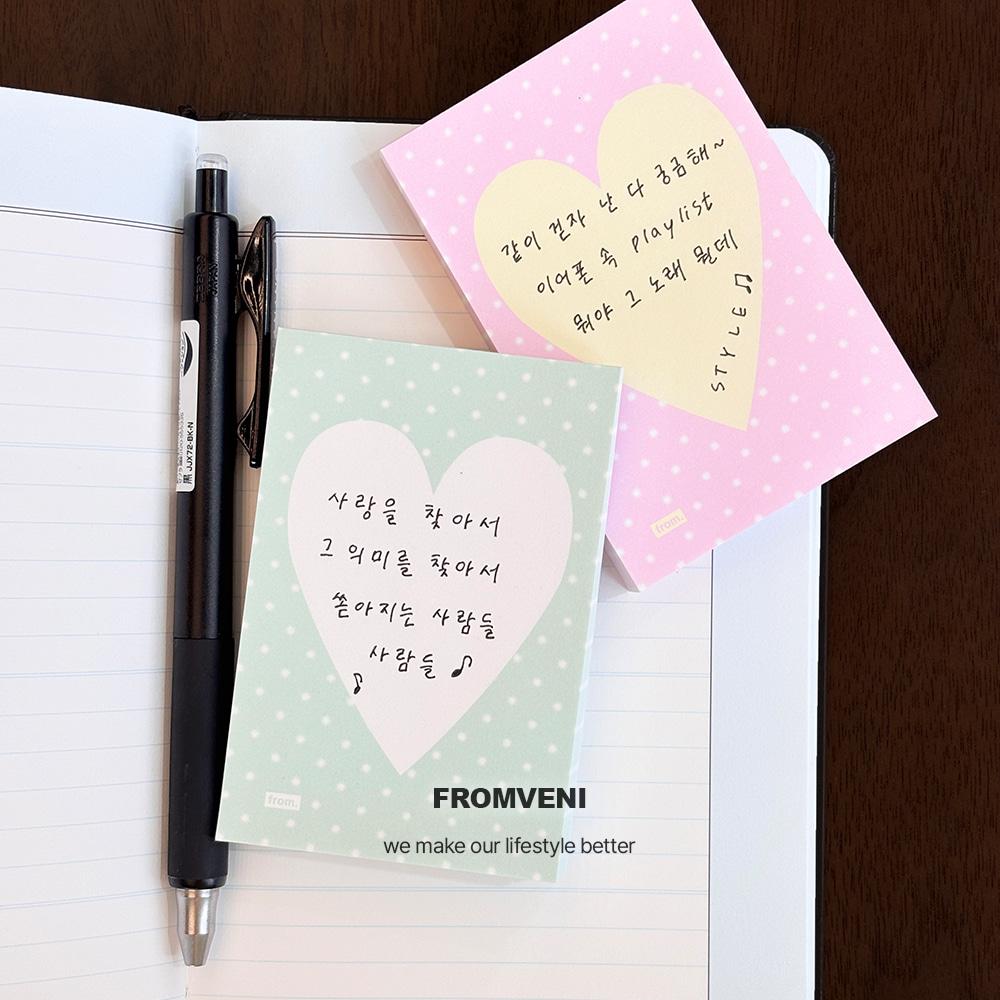 같이 걷자 난 다 궁금해~
이어폰 속 playlist
뭐야 그 노래 뭔데
STYLE
from.
사랑을 찾아서
그 의미를 찾아서
쏟아지는 사람들
사람들
from.
黒 JJX72-BK-N
FROMVENI
we make our lifestyle better